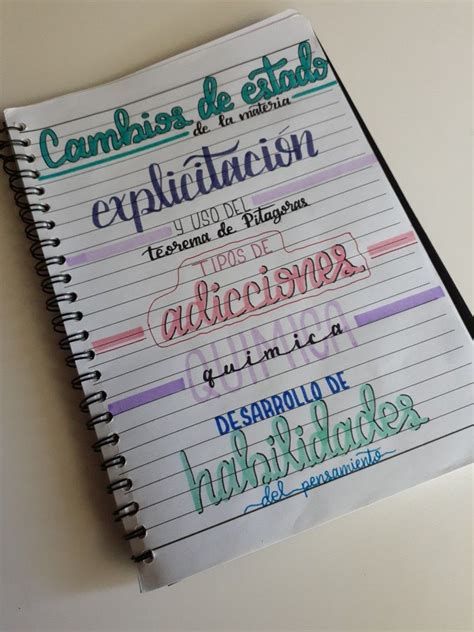 Cambios de estado
de la materia
explicitación
Y USO DEL
teorema de Pitagoras
TIPOS DE
adicciones
QUIMICA
quimica
DESARROLLO DE
habilidades
del pensamiento